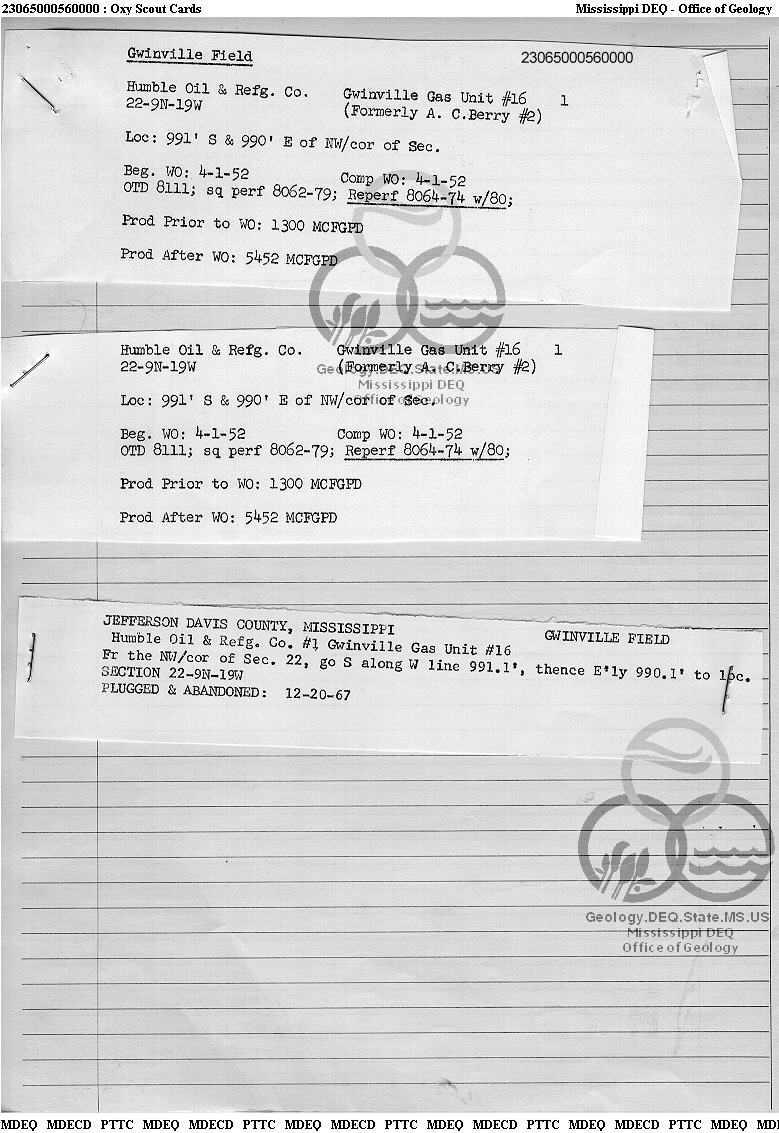 23065000560000 : Oxy Scout Cards Mississippi DEQ - Office of Geology
Gwinville Field 23065000560000
Humble Oil & Refg. Co. Gwinville Gas Unit #16 1
22-9N-19W (Formerly A. C.Berry #2)
Loc: 991' S & 990' E of NW/cor of Sec.
Beg. WO: 4-1-52 Comp WO: 4-1-52
OTD 8111; sq perf 8062-79; Reperf 8064-74 w/80;
Prod Prior to WO: 1300 MCFGPD
Prod After WO: 5452 MCFGPD
Humble Oil & Refg. Co. Gwinville Gas Unit #16 1
22-9N-19W (Formerly A. C.Berry #2)
Geology.DEQ.State.MS.US
Mississippi DEQ
Office of Geology
Loc: 991' S & 990' E of NW/cor of Sec.
Beg. WO: 4-1-52 Comp WO: 4-1-52
OTD 8111; sq perf 8062-79; Reperf 8064-74 w/80;
Prod Prior to WO: 1300 MCFGPD
Prod After WO: 5452 MCFGPD
JEFFERSON DAVIS COUNTY, MISSISSIPPI GWINVILLE FIELD
Humble Oil & Refg. Co. #1 Gwinville Gas Unit #16
Fr the NW/cor of Sec. 22, go S along W line 991.1', thence E'ly 990.1' to loc.
SECTION 22-9N-19W
PLUGGED & ABANDONED: 12-20-67
Geology.DEQ.State.MS.US
Mississippi DEQ
Office of Geology
MDEQ MDECD PTTC MDEQ MDECD PTTC MDEQ MDECD PTTC MDEQ MDECD PTTC MDEQ MDECD PTTC MDEQ MDE